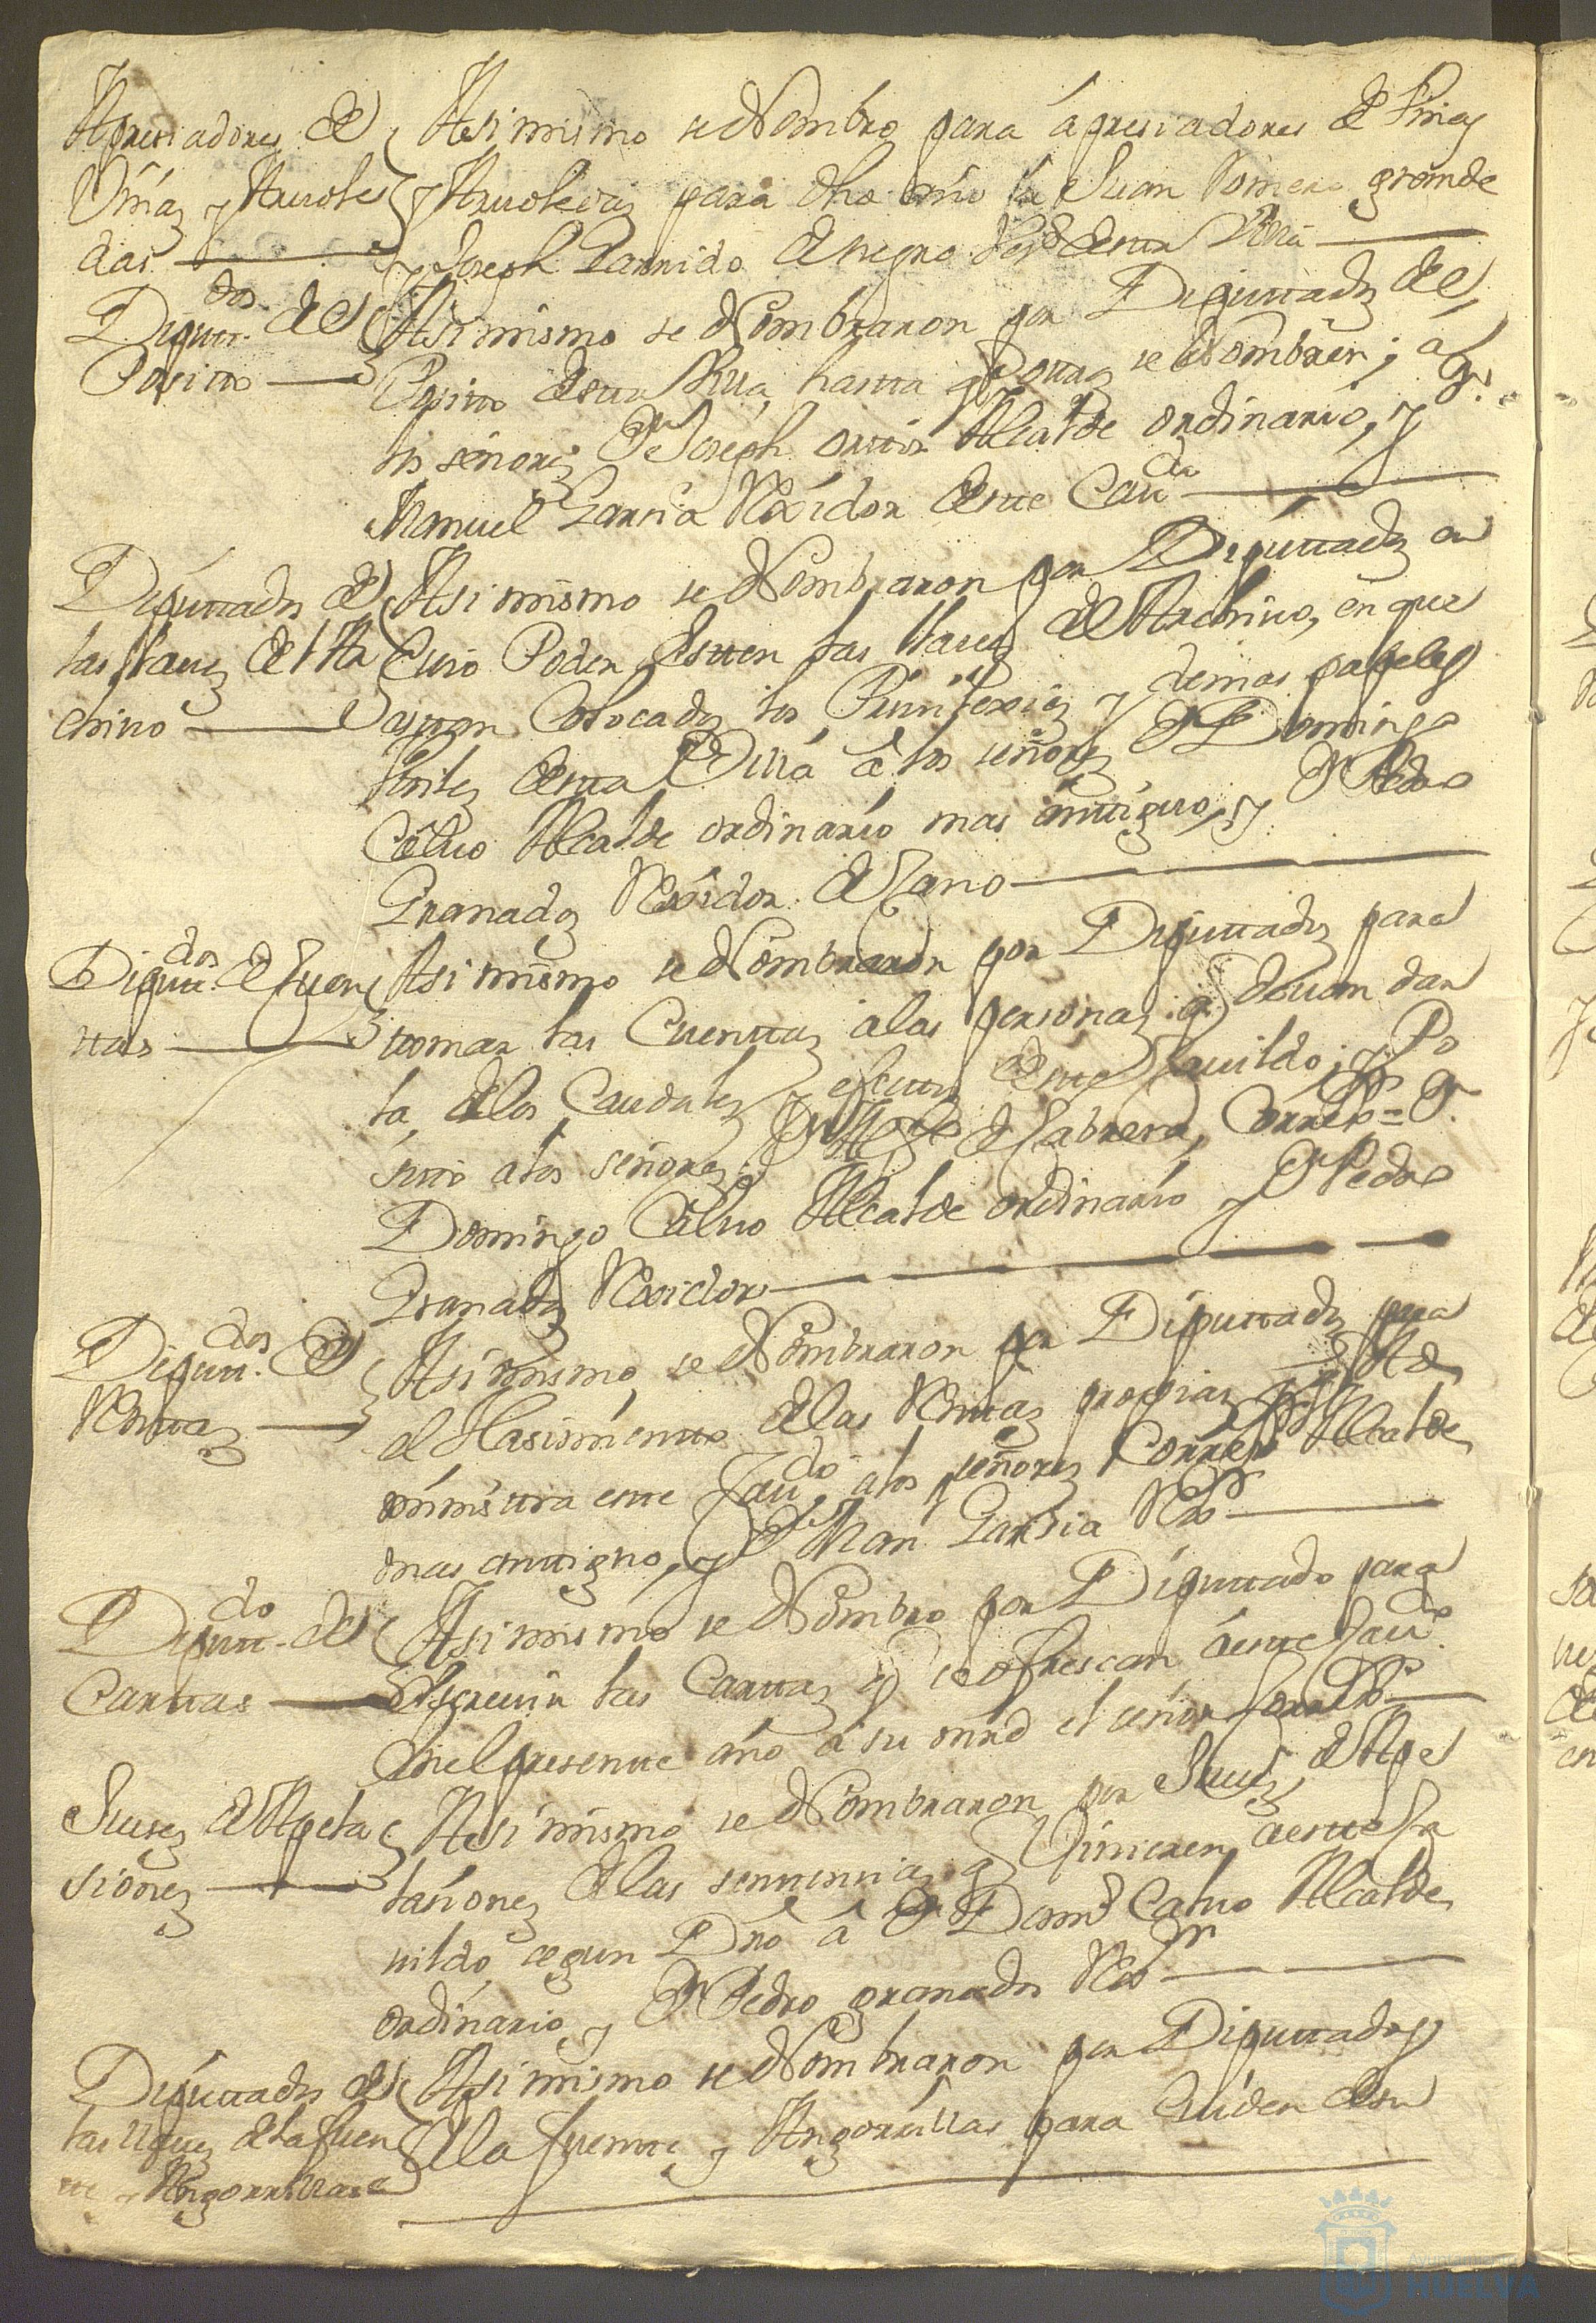 Apresiadores de
Viñas y Aruole
das
Asi mismo se Nombro para ápresiadores de Viñas
y Aruoledas para dho año a Juan Romero grande
y Joseph Garrido de negro Vezs. desta Villa
Diputt.dos del
Posito
Asi mismo se Nombraron por Diputtados del
Posito desta Villa, hasta q.e ottros se Nombren; a
los señores Dn. Joseph orttiz Alcalde ordinario, y Dn.
Manuel Garsia Rexidor deste Cau.do
Diputtados de
las llaues del Ar
chiuo
Asi mismo se Nombraron por Diputtados en
Cuio Poder Estten las llaues del Archiuo, en que
estan Colocados los Priuilexios y demas papeles
vtiles desta Villa â los señores Dn. Domingo
Caluo Alcalde ordinario mas ánttiguo, y Dn. Pedro
Granados Rexidor Decano
Diputt.dos de Quen
ttas
Asi mismo se Nombraron por Diputtados para
ttomar las Cuenttas a las personas q. deuan dar
la, de los Caudales y efecttos deste Cauildo, y Po
sitto a los señores Dn. de Cabrera, Corregor = Dn.
Domingo Caluo Alcalde ordinario y Dn. Pedro
Granados Rexidor
Diputt.dos de
Renttas
Asi mismo se Nombraron por Diputtados para
el Hasimientto de las Renttas propias q. Ad
ministtra este Cau.do, a los señores Corregor Alcalde
mas anttiguo, y Dn. Man. Garsia Rexor
Diputt.do de
Carttas
Asi mismo se Nombro por Diputtado para
Escreuir las Carttas q se ofrescan á este Cau.do
en el presentte año á su mrd el señor Corregor
Jueses de Apela
siones
Asi mismo se Nombraron por Jueses de Ape
lasiones de las senttensias q Vinieren a este Ca
uildo, segun Dro â Dn. Domo. Caluo Alcalde
ordinario, y Dn. Pedro granados Rexor
Diputtados de
las llaues de la fuen
tte y Angorrillas
Asi mismo se Nombraron por Diputtados
de la fuentte y Angorrillas para Cuiden de su
Ayuntamiento
HUELVA